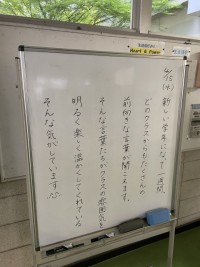 Heart & Power
4/15
新しい学年になって一週間、
どのクラスからもたくさんの
前向きな言葉が聞こえます。
そんな言葉たちがクラスの雰囲気を
明るく楽しく温かくしてくれている
そんな気がしています